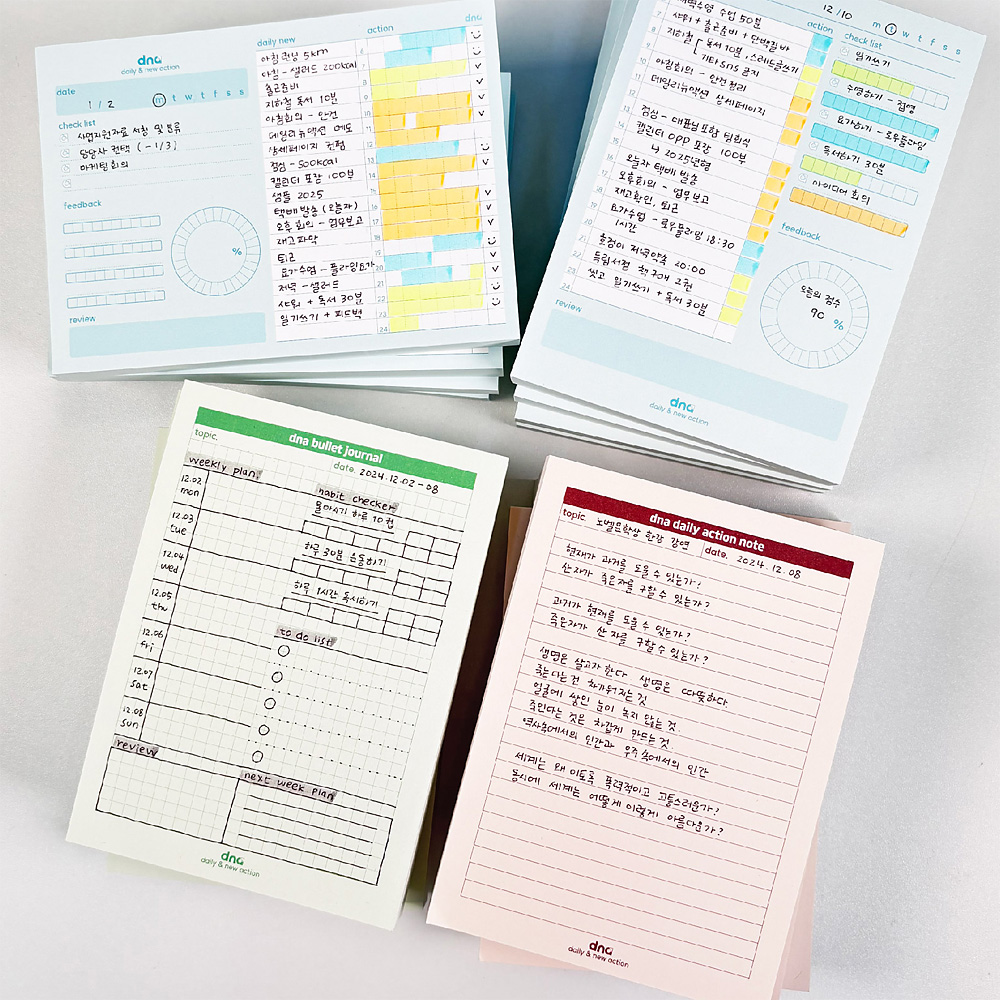 dna
daily & new action
date
1 / 2
m t w t f s s
check list
사업지원자료 서칭 및 분류
담당자 컨택 (-1/3)
마케팅 회의
feedback
%
review
daily new
action
dna
아침 런닝 5km
아침 - 샐러드 200kcal
출근준비
지하철 독서 10분
아침회의 - 안건
데일리뉴액션 메모
상세페이지 컨펌
점심 - 500kcal
캘린더 포장 100부
샘플 2025
택배 발송 (오늘자)
오후 회의 - 업무보고
재고파악
퇴근
요가수업 - 플라잉요가
저녁 - 샐러드
샤워 + 독서 30분
일기쓰기 + 피드백
6
7
8
9
10
11
12
13
14
15
16
17
18
19
20
21
22
23
24
12/10
m t w t f s s
action
check list
수업 50분
샤워 + 출근준비 + 단백질바
지하철 [ 독서 10분, 스레드글쓰기
기타 sns 공지
아침회의 - 안건정리
데일리뉴액션 상세페이지
점심 -
캘린더 OPP 포장 100부
ㄴ 2025년형
오늘자 택배 발송
오후회의 - 업무보고
재고확인, 퇴근
요가수업 - 로우플라잉 18:30
1시간
저녁약속 20:00
독립서점 책구매 2권
씻고 일기쓰기 + 독서 30분
일기쓰기
수영하기 - 접영
요가하기 - 로우플라잉
독서하기 30분
아이디어 회의
feedback
오늘의 점수
90 %
review
dna
daily & new action
dna bullet journal
topic.
date. 2024.12.02 - 08
weekly plan.
12.02
mon
12.03
tue
12.04
wed
12.05
thu
12.06
fri
12.07
sat
12.08
sun
habit checker
물마시기 하루 10컵
하루 30분 운동하기
하루 1시간 독서하기
to do list
review
next week plan
dna
daily & new action
dna daily action note
topic. 노벨문학상 한강 강연
date. 2024.12.08
현재가 과거를 도울 수 있는가?
산 자가 죽은자를 구할 수 있는가?
과거가 현재를 도울 수 있는가?
죽은자가 산 자를 구할 수 있는가?
생명은 살고자 한다 생명은 따뜻하다
죽는다는 건 차가워지는 것
얼굴에 쌓인 눈이 녹지 않는 것
죽인다는 것은 차갑게 만드는 것.
역사속에서의 인간과 우주속에서의 인간
세계는 왜 이토록 폭력적이고 고통스러운가?
동시에 세계는 어떻게 이렇게 아름다운가?
dna
daily & new action